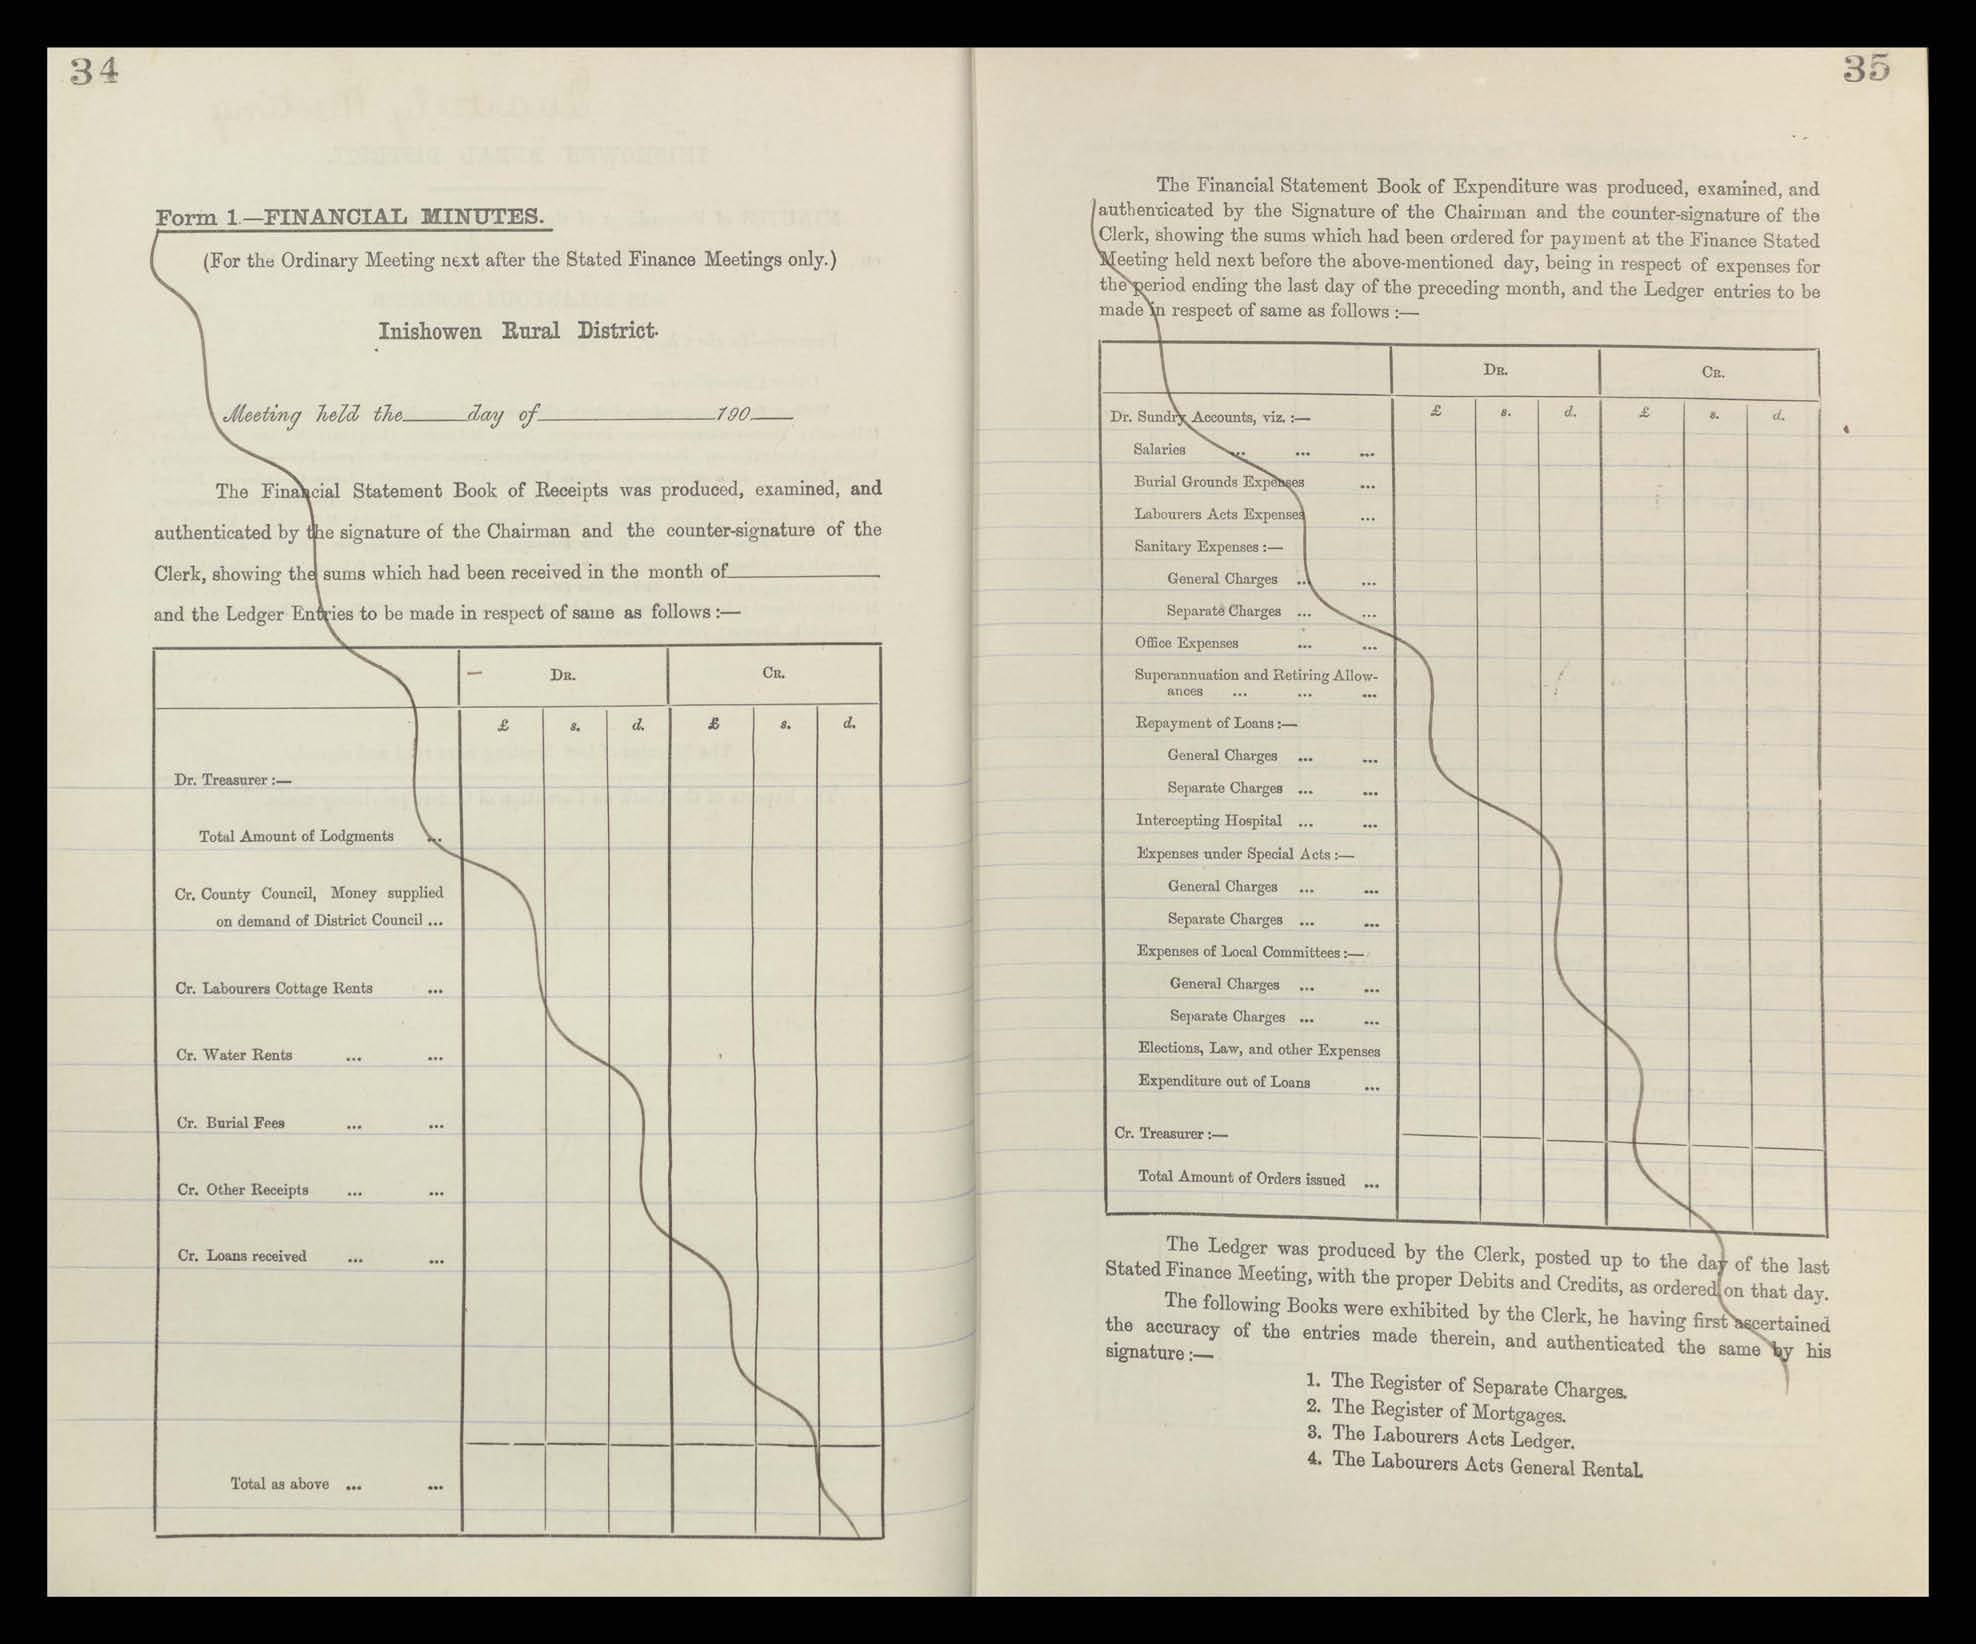 34
Form 1.—FINANCIAL MINUTES.
(For the Ordinary Meeting next after the Stated Finance Meetings only.)
Inishowen Rural District.
Meeting held the day of 190
The Financial Statement Book of Receipts was produced, examined, and
authenticated by the signature of the Chairman and the counter-signature of the
Clerk, showing the sums which had been received in the month of
and the Ledger Entries to be made in respect of same as follows :—
DR. CR.
£ s. d. £ s. d.
Dr. Treasurer :—
Total Amount of Lodgments ...
Cr. County Council, Money supplied
on demand of District Council ...
Cr. Labourers Cottage Rents ...
Cr. Water Rents ... ...
Cr. Burial Fees ... ...
Cr. Other Receipts ... ...
Cr. Loans received ... ...
Total as above ... ...
35
The Financial Statement Book of Expenditure was produced, examined, and
authenticated by the Signature of the Chairman and the counter-signature of the
Clerk, showing the sums which had been ordered for payment at the Finance Stated
Meeting held next before the above-mentioned day, being in respect of expenses for
the period ending the last day of the preceding month, and the Ledger entries to be
made in respect of same as follows :—
DR. CR.
Dr. Sundry Accounts, viz. :— £ s. d. £ s. d.
Salaries ... ... ...
Burial Grounds Expenses ...
Labourers Acts Expenses ...
Sanitary Expenses :—
General Charges ... ...
Separate Charges ... ...
Office Expenses ... ...
Superannuation and Retiring Allow-
ances ... ... ...
Repayment of Loans :—
General Charges ... ...
Separate Charges ... ...
Intercepting Hospital ... ...
Expenses under Special Acts :—
General Charges ... ...
Separate Charges ... ...
Expenses of Local Committees :—
General Charges ... ...
Separate Charges ... ...
Elections, Law, and other Expenses
Expenditure out of Loans ...
Cr. Treasurer :—
Total Amount of Orders issued ...
The Ledger was produced by the Clerk, posted up to the day of the last
Stated Finance Meeting, with the proper Debits and Credits, as ordered on that day.
The following Books were exhibited by the Clerk, he having first ascertained
the accuracy of the entries made therein, and authenticated the same by his
signature :—
1. The Register of Separate Charges.
2. The Register of Mortgages.
3. The Labourers Acts Ledger.
4. The Labourers Acts General Rental.